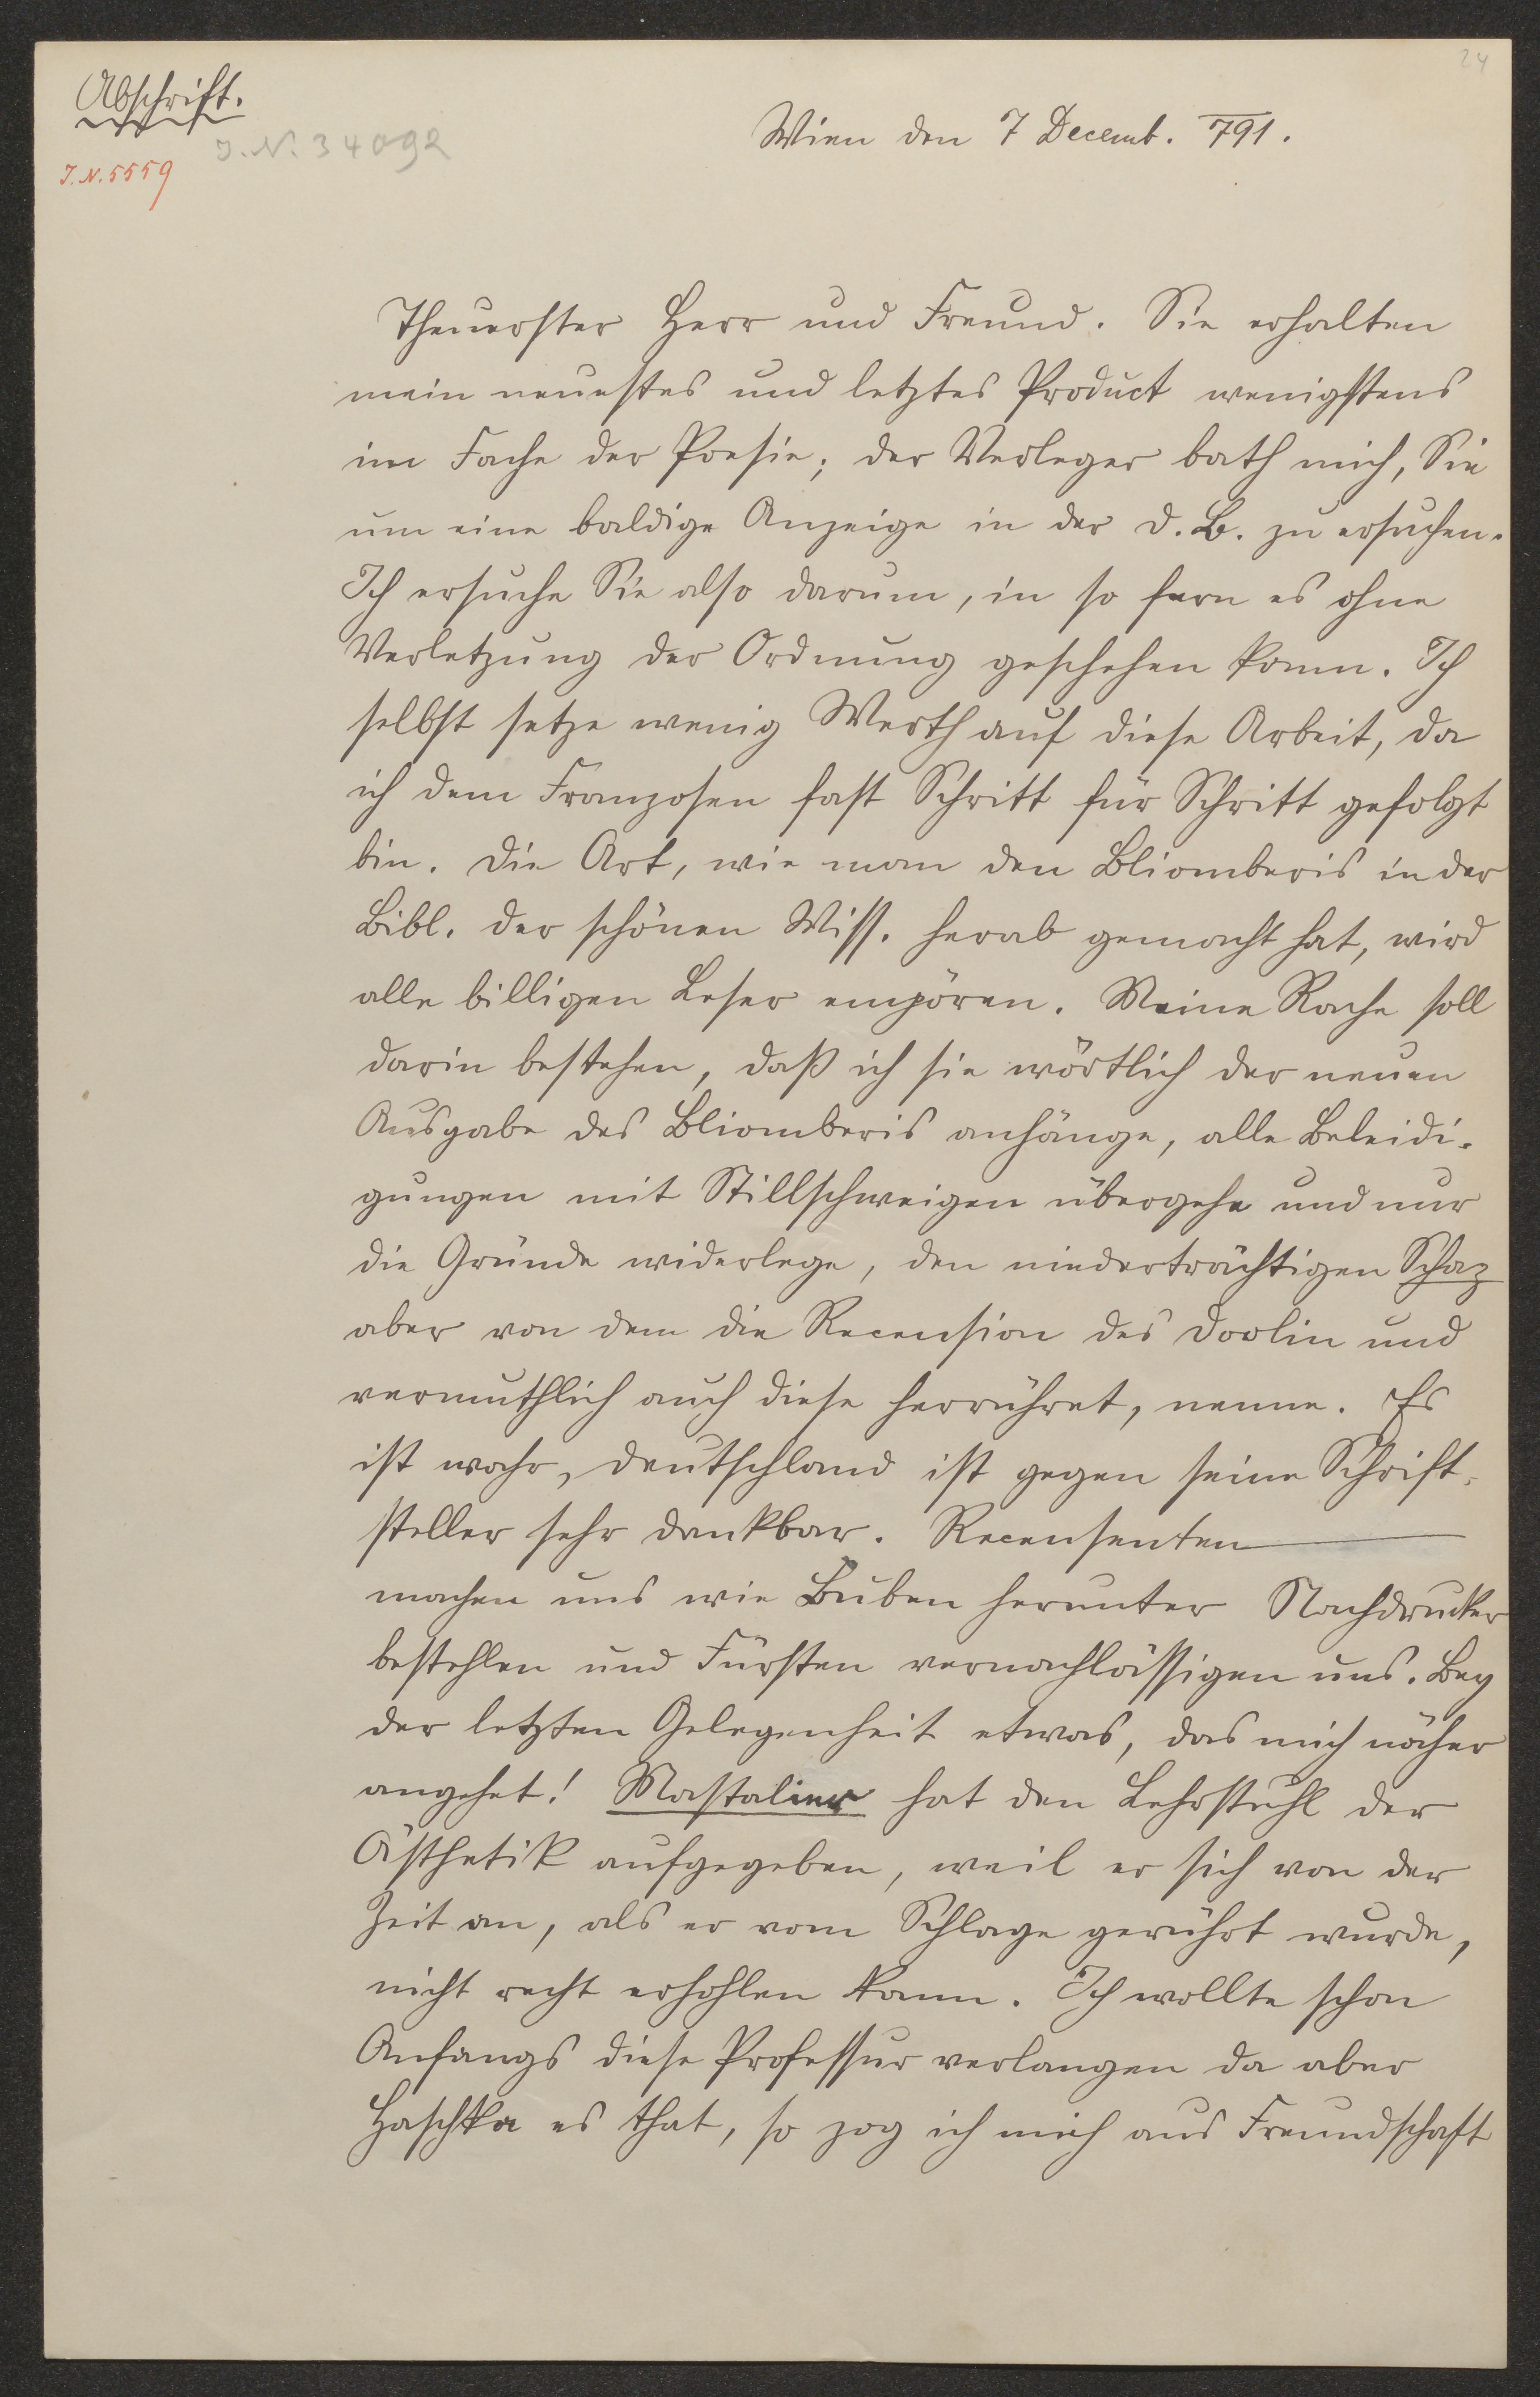 24
Abschrift.
J. N. 34092
J. N. 5559
Wien den 7 Decemb. 791.
Theuerster Herr und Freund. Sie erhalten
mein neuestes und letztes Product wenigstens
im Fache der Poesie; der Verleger bath mich, Sie
um eine baldige Anzeige in der d. B. zu ersuchen.
Ich ersuche Sie also darum, in so fern es ohne
Verletzung der Ordnung geschehen kann. Ich
selbst setze wenig Werth auf diese Arbeit, da
ich dem Franzosen fast Schritt für Schritt gefolgt
bin. Die Art, wie man den Bliomberis in der
Bibl. der schönen Wiss. herab gemacht hat, wird
alle billigen Leser empören. Meine Rache soll
darin bestehen, daß ich sie wörtlich der neuen
Ausgabe des Bliomberis anhänge, alle Beleidi-
gungen mit Stillschweigen übergehe und nur
die Gründe widerlege, den niederträchtigen Schaz
aber von dem die Recension des Doolin und
vermuthlich auch diese herrühret, nenne. Es
ist wahr, Deutschland ist gegen seine Schrift-
steller sehr dankbar. Recensenten
machen uns wie Buben herunter Nachdrucker
bestehlen und Fürsten vernachlässigen uns. Bey
der letzten Gelegenheit etwas, das mich näher
angehet! Mastalier hat den Lehrstuhl der
Ästhetik aufgegeben, weil er sich von der
Zeit an, als er vom Schlage gerührt wurde,
nicht recht erhohlen kann. Ich wollte schon
Anfangs diese Professur verlangen da aber
Haschka es that, so zog ich mich aus Freundschaft